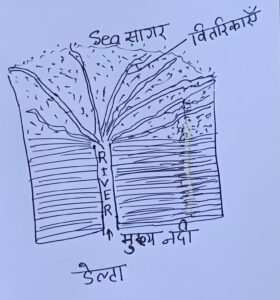 Sea सागर
वितरिकाएँ
RIVER
मुख्य नदी
डेल्टा